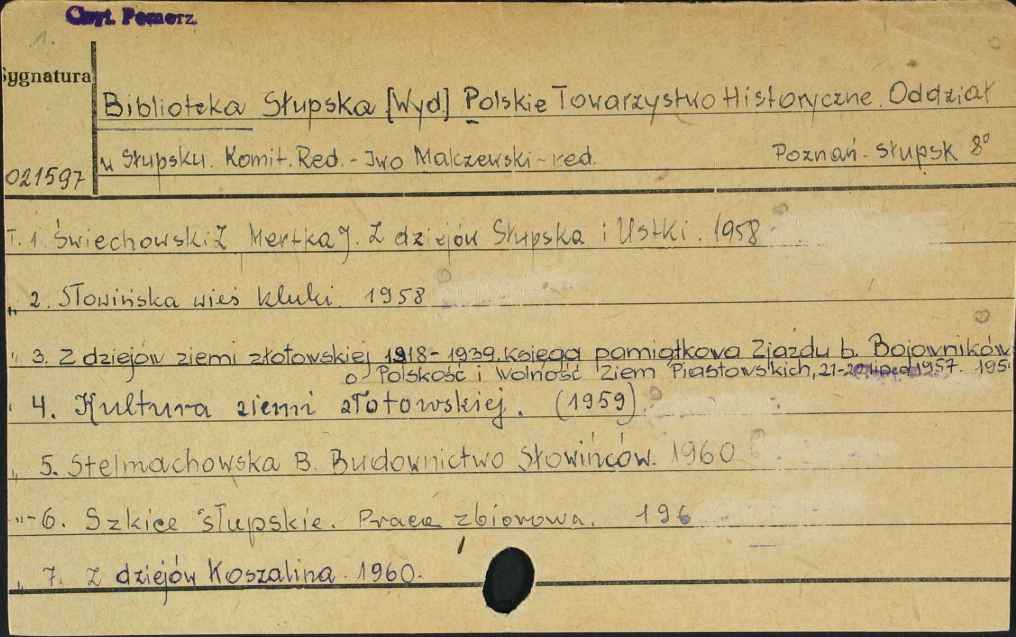 Czyt. Pomorz.
1.
Sygnatura
Biblioteka Słupska [Wyd] Polskie Towarzystwo Historyczne. Oddział
w Słupsku. Komit. Red. - Iwo Malczewski - red. Poznań - Słupsk 8°
021597
T. 1. Świechowski Z Mertka J. Z dziejów Słupska i Ustki. 1958
" 2. Słowińska wieś Kluki. 1958
" 3. Z dziejów ziemi złotowskiej 1918-1939. Księga pamiątkowa Zjazdu b. Bojowników
o Polskość i Wolność Ziem Piastowskich, 21-22 lipca 1957. 195
" 4. Kultura ziemi złotowskiej. (1959)
" 5. Stelmachowska B. Budownictwo Słowińców. 1960
" - 6. Szkice słupskie. Praca zbiorowa. 196
" 7. Z dziejów Koszalina. 1960.